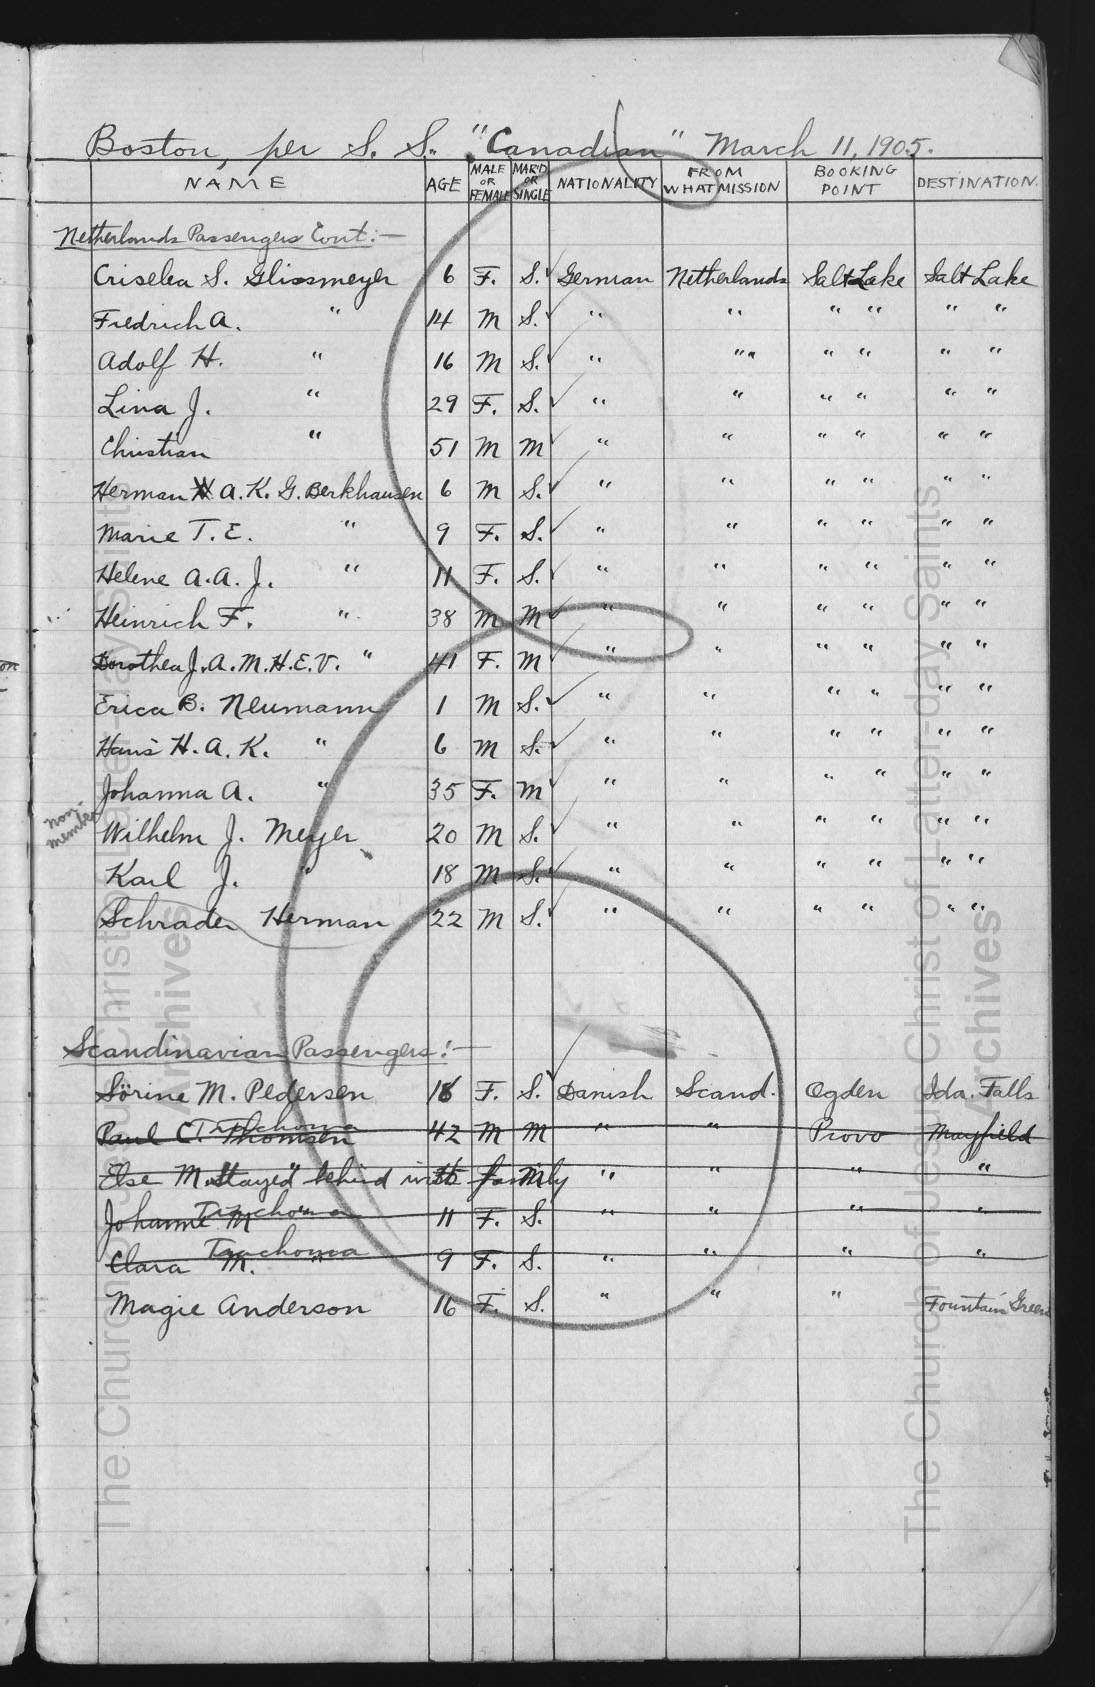 Boston, per S. S. "Canadian" March 11, 1905.
NAME AGE MALE OR FEMALE MAR'D OR SINGLE NATIONALITY FROM WHAT MISSION BOOKING POINT DESTINATION.
Netherlands Passengers Cont:—
Criselea S. Glissmeyer 6 F. S. German Netherlands Salt Lake Salt Lake
Fredrich A. " 14 M S. " " " " " "
Adolf H. " 16 M S. " " " " " "
Lina J. " 29 F. S. " " " " " "
Christian " 51 M M " " " " " "
Herman A. K. G. Berkhausen 6 M S. " " " " " "
Marie T. E. " 9 F. S. " " " " " "
Helene A. A. J. " 11 F. S. " " " " " "
Heinrich F. " 38 M M " " " " " "
Dorothea J. A. M. H. E. V. " 41 F. M " " " " " "
Erica B. Neumann 1 M S. " " " " " "
Hans H. A. K. " 6 M S. " " " " " "
Johanna A. " 35 F. M " " " " " "
non-member Wilhelm J. Meyer 20 M S. " " " " " "
Karl J. " 18 M S. " " " " " "
Schrader Herman 22 M S. " " " " " "
Scandinavian Passengers:—
Sörine M. Pedersen 16 F. S. Danish Scand. Ogden Ida. Falls
Trachoma
Paul C. Thomsen 42 M M " " Provo Mayfield
Else M. "stayed behind with family M " " " "
Trachoma
Johanne M 11 F. S. " " " "
Trachoma
Clara M. " 9 F. S. " " " "
Magie Anderson 16 F. S. " " " Fountain Green
The Church of Jesus Christ of Latter-day Saints
Archives
The Church of Jesus Christ of Latter-day Saints
Archives